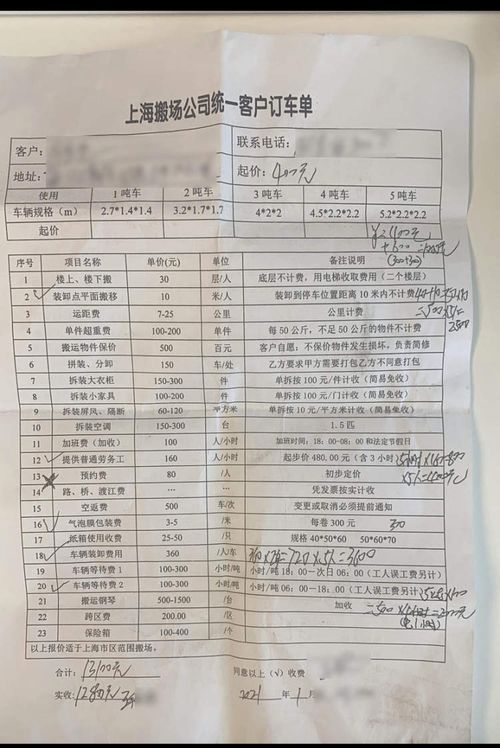 上海搬场公司统一客户订车单
客户: 联系电话:
地址: 起价: 400元
使用 1吨车 2吨车 3吨车 4吨车 5吨车
车辆规格(m) 2.7*1.4*1.4 3.2*1.7*1.7 4*2*2 4.5*2.2*2.2 5.2*2.2*2.2
起价
序号 项目名称 单价(元) 单位 备注说明
1 楼上、楼下搬 30 层/人 底层不计费,用电梯收取费用(二个楼层)
2 装卸点平面搬移 10 米/人 装卸到停车位置距离10米内不计费
3 运距费 7-25 公里 公里计费
4 单件超重费 100-200 单件 每50公斤,不足50公斤的物件不计费
5 搬运物件保价 500 百元 客户自愿;不保价物件发生损坏,负责简修
6 拼装、分卸 150 车/处 乙方要求甲方需要打包乙方不同意打包
7 拆装大衣柜 150-300 件 单拆按100元/件计收(简易免收)
8 拆装小家具 100-200 件 单拆按100元/门计收(简易免收)
9 拆装屏风、隔断 60-120 平方米 单拆按10元/平方米计收(简易免收)
10 拆装空调 150-300 台 1.5匹
11 加班费(加收) 100 人/小时 加班时间:18:00-08:00和法定节假日
12 提供普通劳务工 160 人/小时 起步价480.00元(含3小时)
13 预约费 80 /人 初步定价
14 路、桥、渡江费 … … 凭发票按实计收
15 空返费 500 车/次 变更或取消必须提前通知
16 气泡膜包装费 3-5 /米 每卷300元 300
17 纸箱使用收费 25-50 /只 规格40*50*60 50*60*70
18 车辆装卸费用 360 人/车 360×2车=720×5人=3600
19 车辆等待费1 100-300 小时/吨 小时/吨18:00-次日06:00(工人误工费另计)
20 车辆等待费2 100-300 小时/吨 小时/吨06:00-18:00(工人误工费另计)
21 搬运钢琴 500-1500 /台 加收
22 跨区费 200.00 /区
23 保险箱 100-400 /个
以上报价适于上海市区范围搬场。
合计: 13100元 同意以上(√)收费
实收: 2021年1月